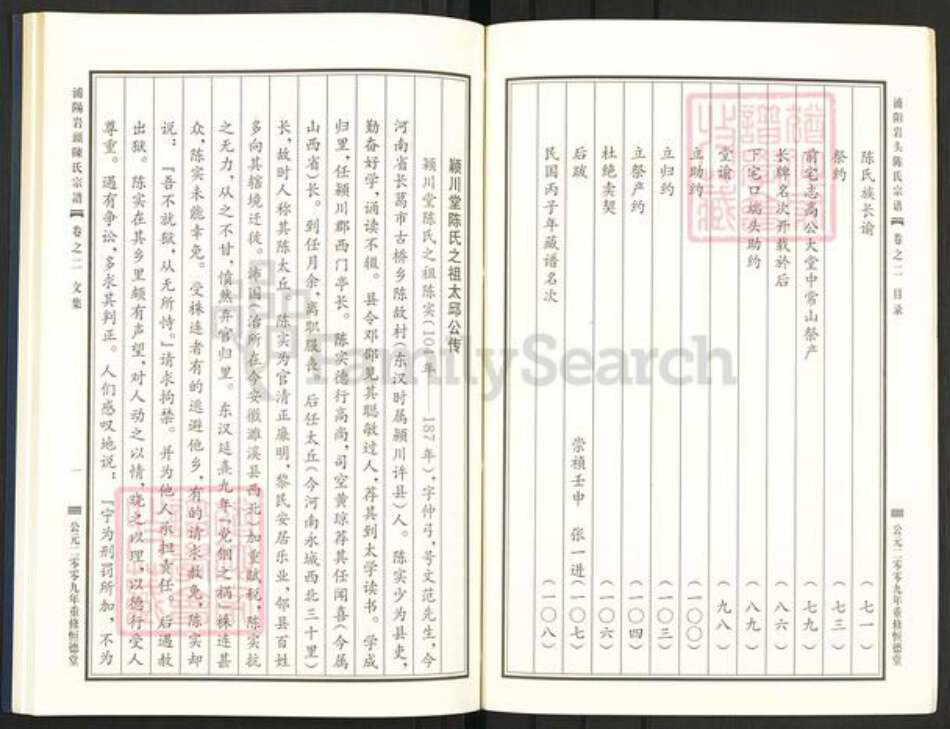 浦阳岩头陈氏宗谱 卷之二 目录
公元二零零九年重修恒德堂
陈氏族长谕（七一）
祭约（七三）
前宅志高公大堂中常山祭产（七九）
长牌名次开载於后（八六）
下宅口端头助约（八九）
堂谕（九八）
立助约（一〇〇）
立归约（一〇三）
立祭产约（一〇四）
杜绝卖契（一〇六）
后跋 崇祯壬申 张一进（一〇七）
民国丙子年藏谱名次（一〇八）
颍川堂陈氏之祖太邱公传
颍川堂陈氏之祖陈实（104年——187年），字仲弓，号文范先生，今
河南省长葛市古桥乡陈故村（东汉时属颍川许县）人。陈实少为县吏，
勤奋好学，诵读不辍。县令邓邵见其聪敏过人，荐其到太学读书。学成
归里，任颍川郡西门亭长。陈实德行高尚，司空黄琼荐其任闻喜（今属
山西省）长。到任月余，离职服丧。后任太丘（今河南永城西北三十里）
长，故时人称其陈太丘。陈实为官清正廉明，黎民安居乐业，邻县百姓
多向其辖境迁徙。沛国（治所在今安徽濉溪县西北）加重赋税，陈实抗
之无力，从之不甘，愤然弃官归里。东汉延熹九年『党锢之祸』株连甚
众，陈实未能幸免。受株连者有的逃避他乡，有的请求赦免，陈实却
说：『吾不就狱，从无所恃。』请求拘禁。并为他人承担责任。后遇赦
出狱。陈实在其乡里颇有声望，对人动之以情，晓之以理，以德行受人
尊重。遇有争讼，多求其判正。人们感叹地说：『宁为刑罚所加，不为
浦陽岩頭陳氏宗譜 卷之二 文集
一
公元二零零九年重修恒德堂
FamilySearch